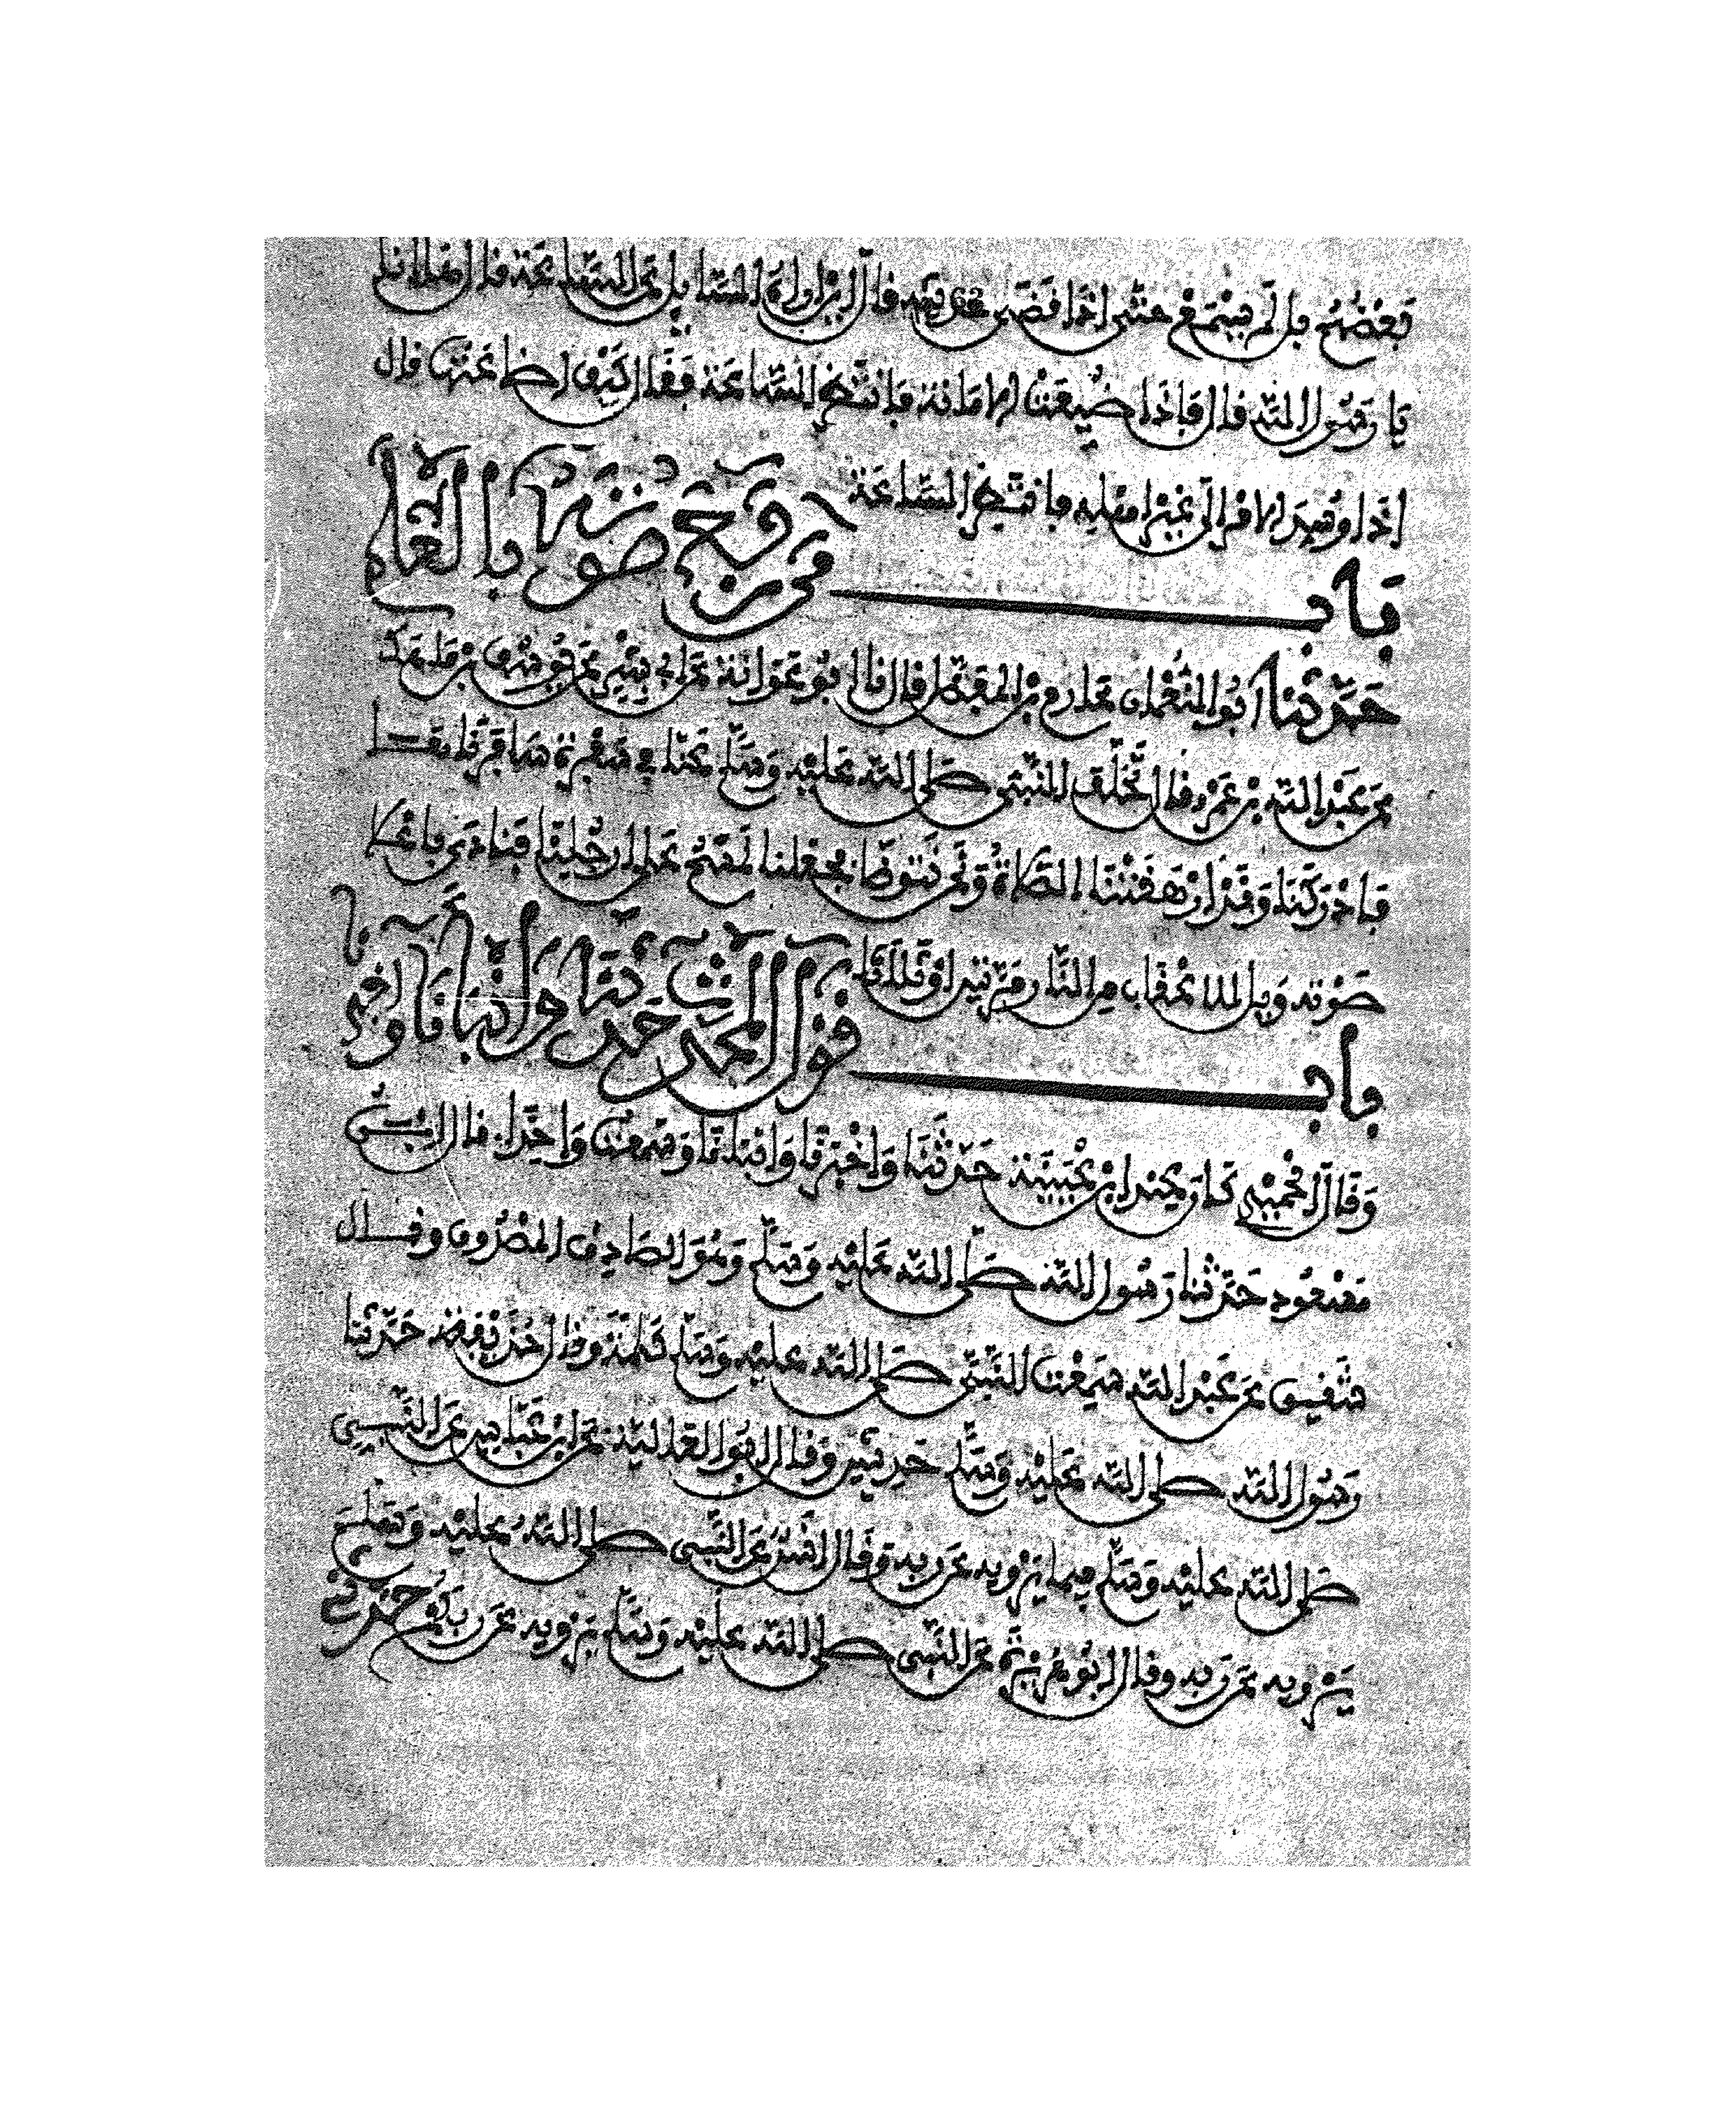 بَعْضُهُمْ بل لَمْ يسْمَعْ حتى إذا قضى حديثه قال أين أراه السائل عن الساعة قال ها أنا
يا رسول الله قال فإذا ضيعت الأمانة فانتظر الساعة فقال كيف إضاعتها قال
إذا وسد الأمر إلى غير أهله فانتظر الساعة
باب من رفع صوته بالعلم
حدثنا أبو النعمان عارم بن الفضل قال نا أبو عوانة عن أبي بشر عن يوسف بن ماهك
عن عبد الله بن عمرو قال تخلف النبي صلى الله عليه وسلم عنا في سفرة سافرناها
فأدركنا وقد أرهقتنا الصلاة ونحن نتوضأ فجعلنا نمسح على أرجلنا فنادى بأعلا
صوته ويل للأعقاب من النار مرتين أو ثلاثا
باب قول المحدث حدثنا وأنبأنا وأخبرنا
وقال الحميدي كان عند ابن عيينة حدثنا وأخبرنا وأنبأنا وسمعت واحدا. قال ابن
مسعود حدثنا رسول الله صلى الله عليه وسلم وهو الصادق المصدوق وقال
شقيق عن عبد الله سمعت النبي صلى الله عليه وسلم كلمة وقال حذيفة حدثنا
رسول الله صلى الله عليه وسلم حديثين وقال أبو العالية عن ابن عباس عن النبي
صلى الله عليه وسلم فيما يرويه عن ربه وقال أنس عن النبي صلى الله عليه وسلم
يرويه عن ربه وقال أبو هريرة عن النبي صلى الله عليه وسلم يرويه عن ربكم حدثني